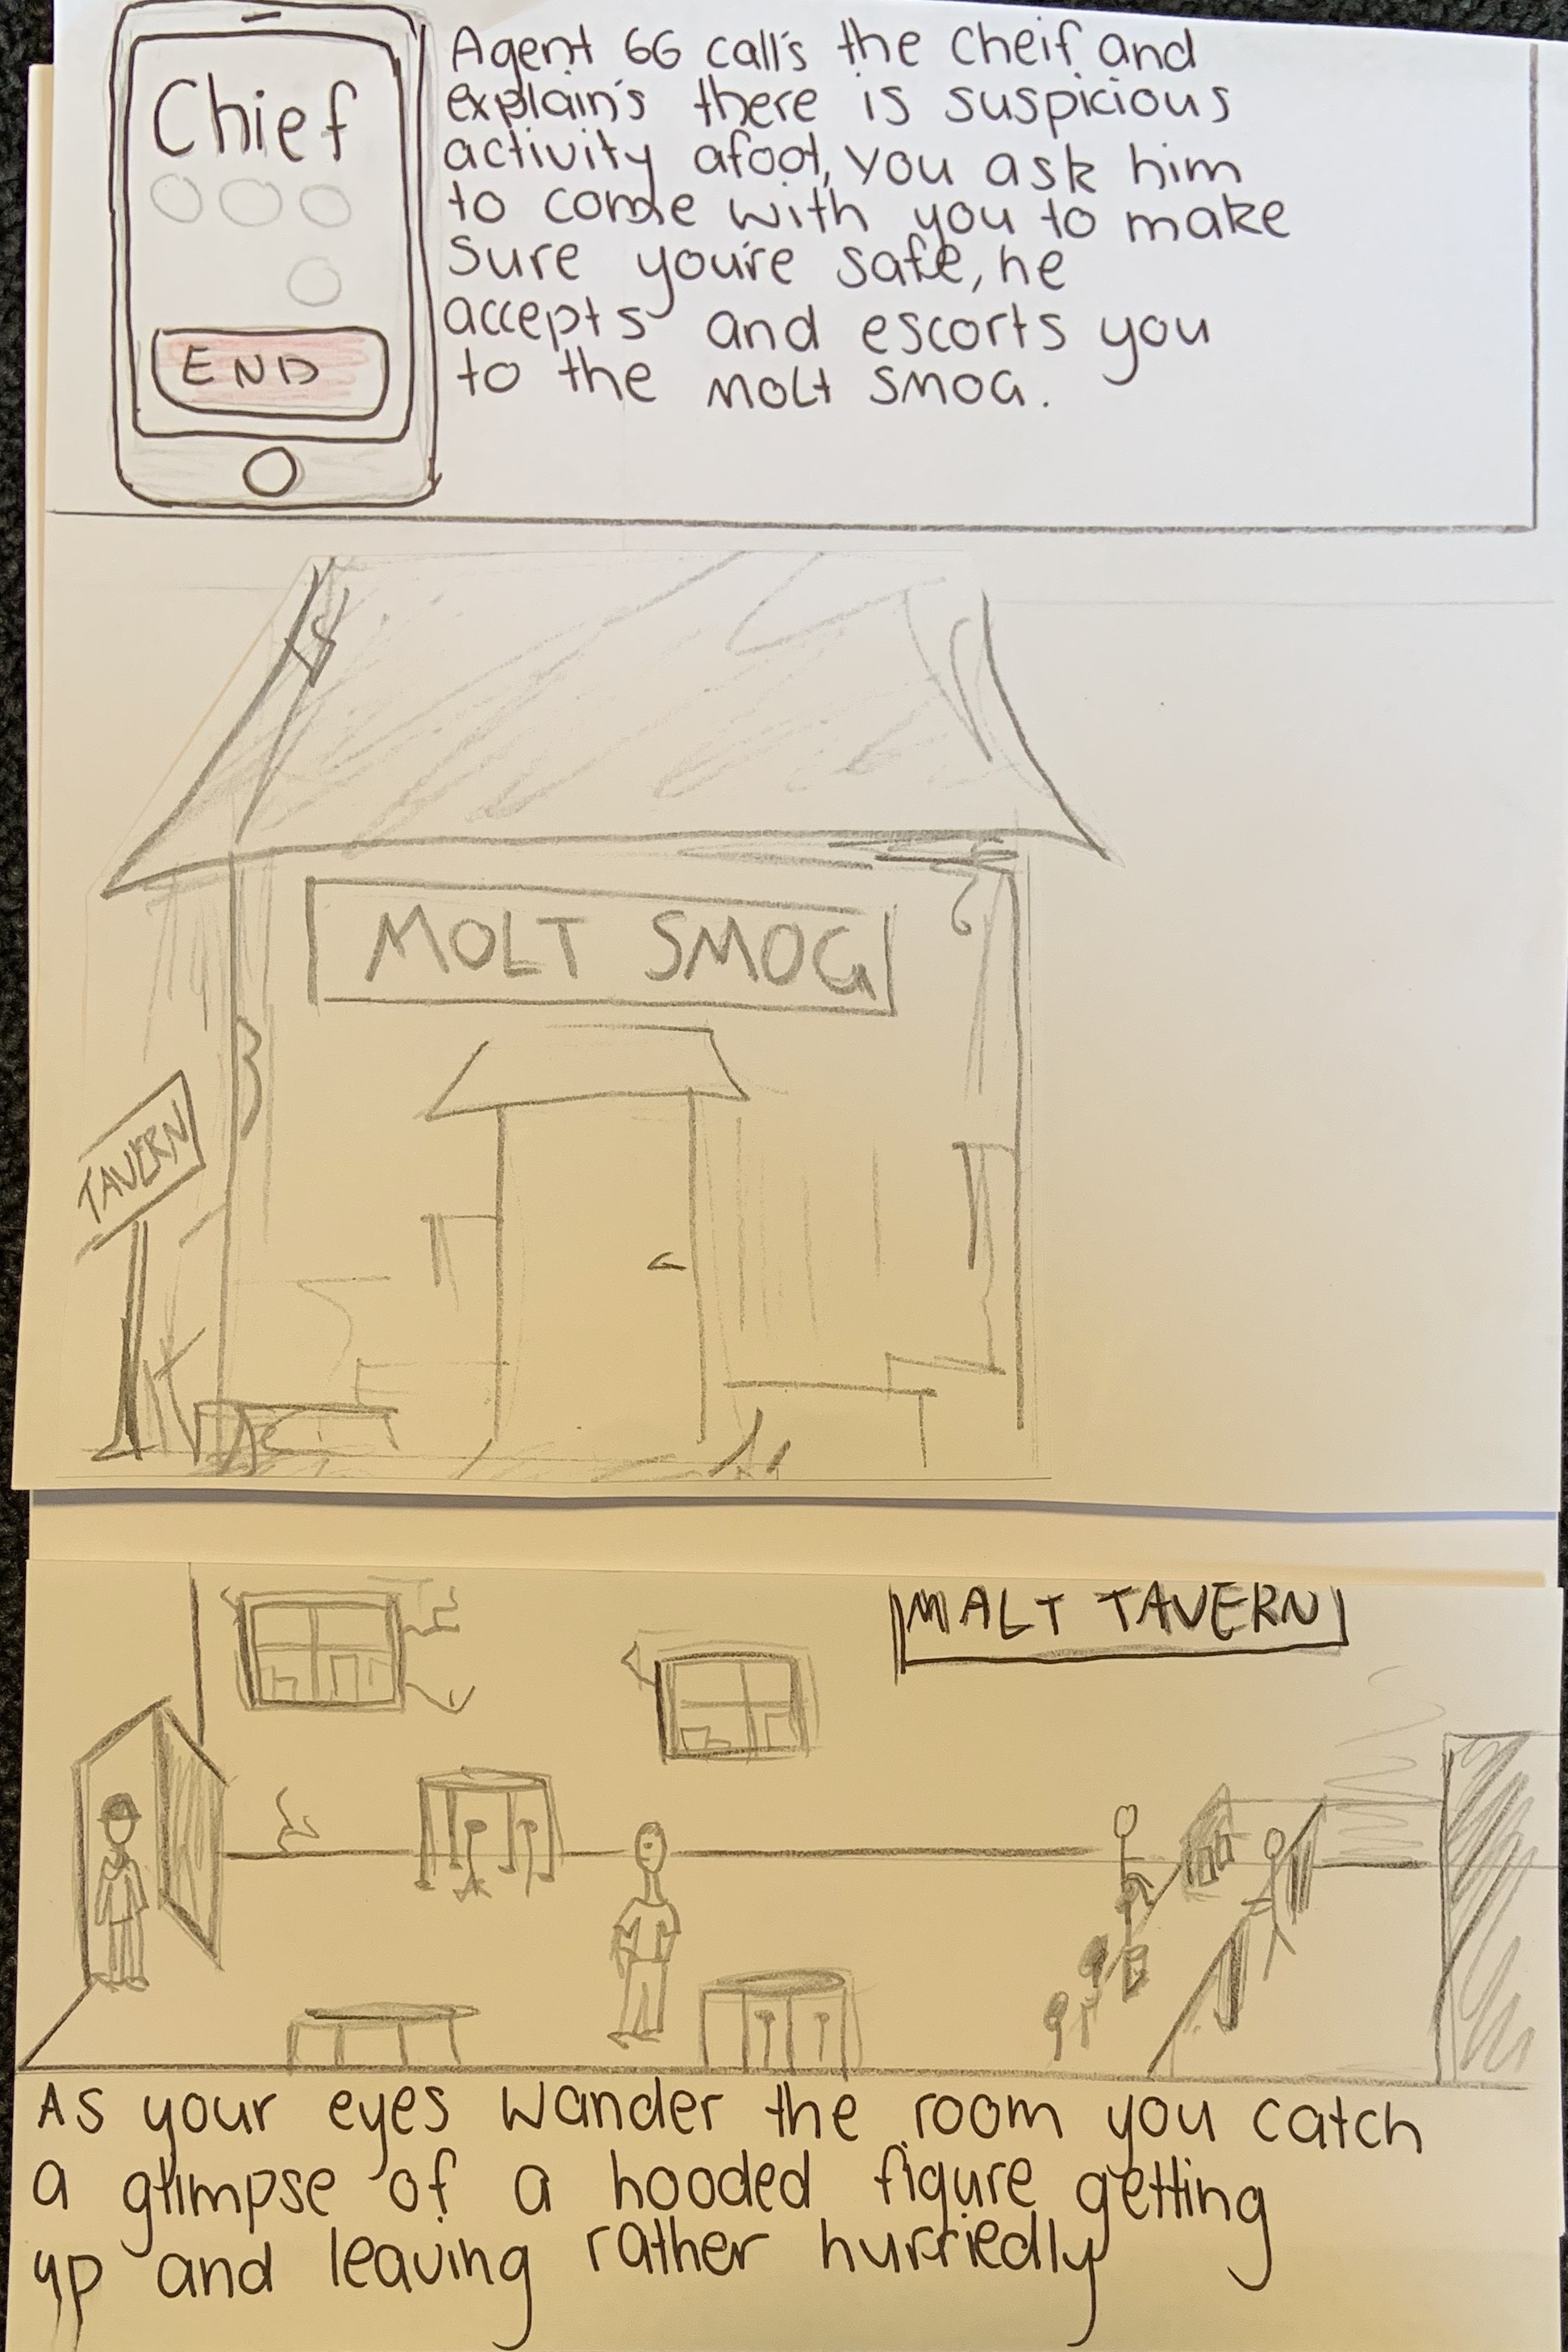 Chief
END
Agent 6G call's the Cheif and
explain's there is suspicious
activity afoot, you ask him
to come with you to make
sure you're safe, he
accepts and escorts you
to the MOLT SMOG.
MOLT SMOG
TAVERN
MALT TAVERN
As your eyes wander the room you catch
a glimpse of a hooded figure getting
up and leaving rather hurriedly